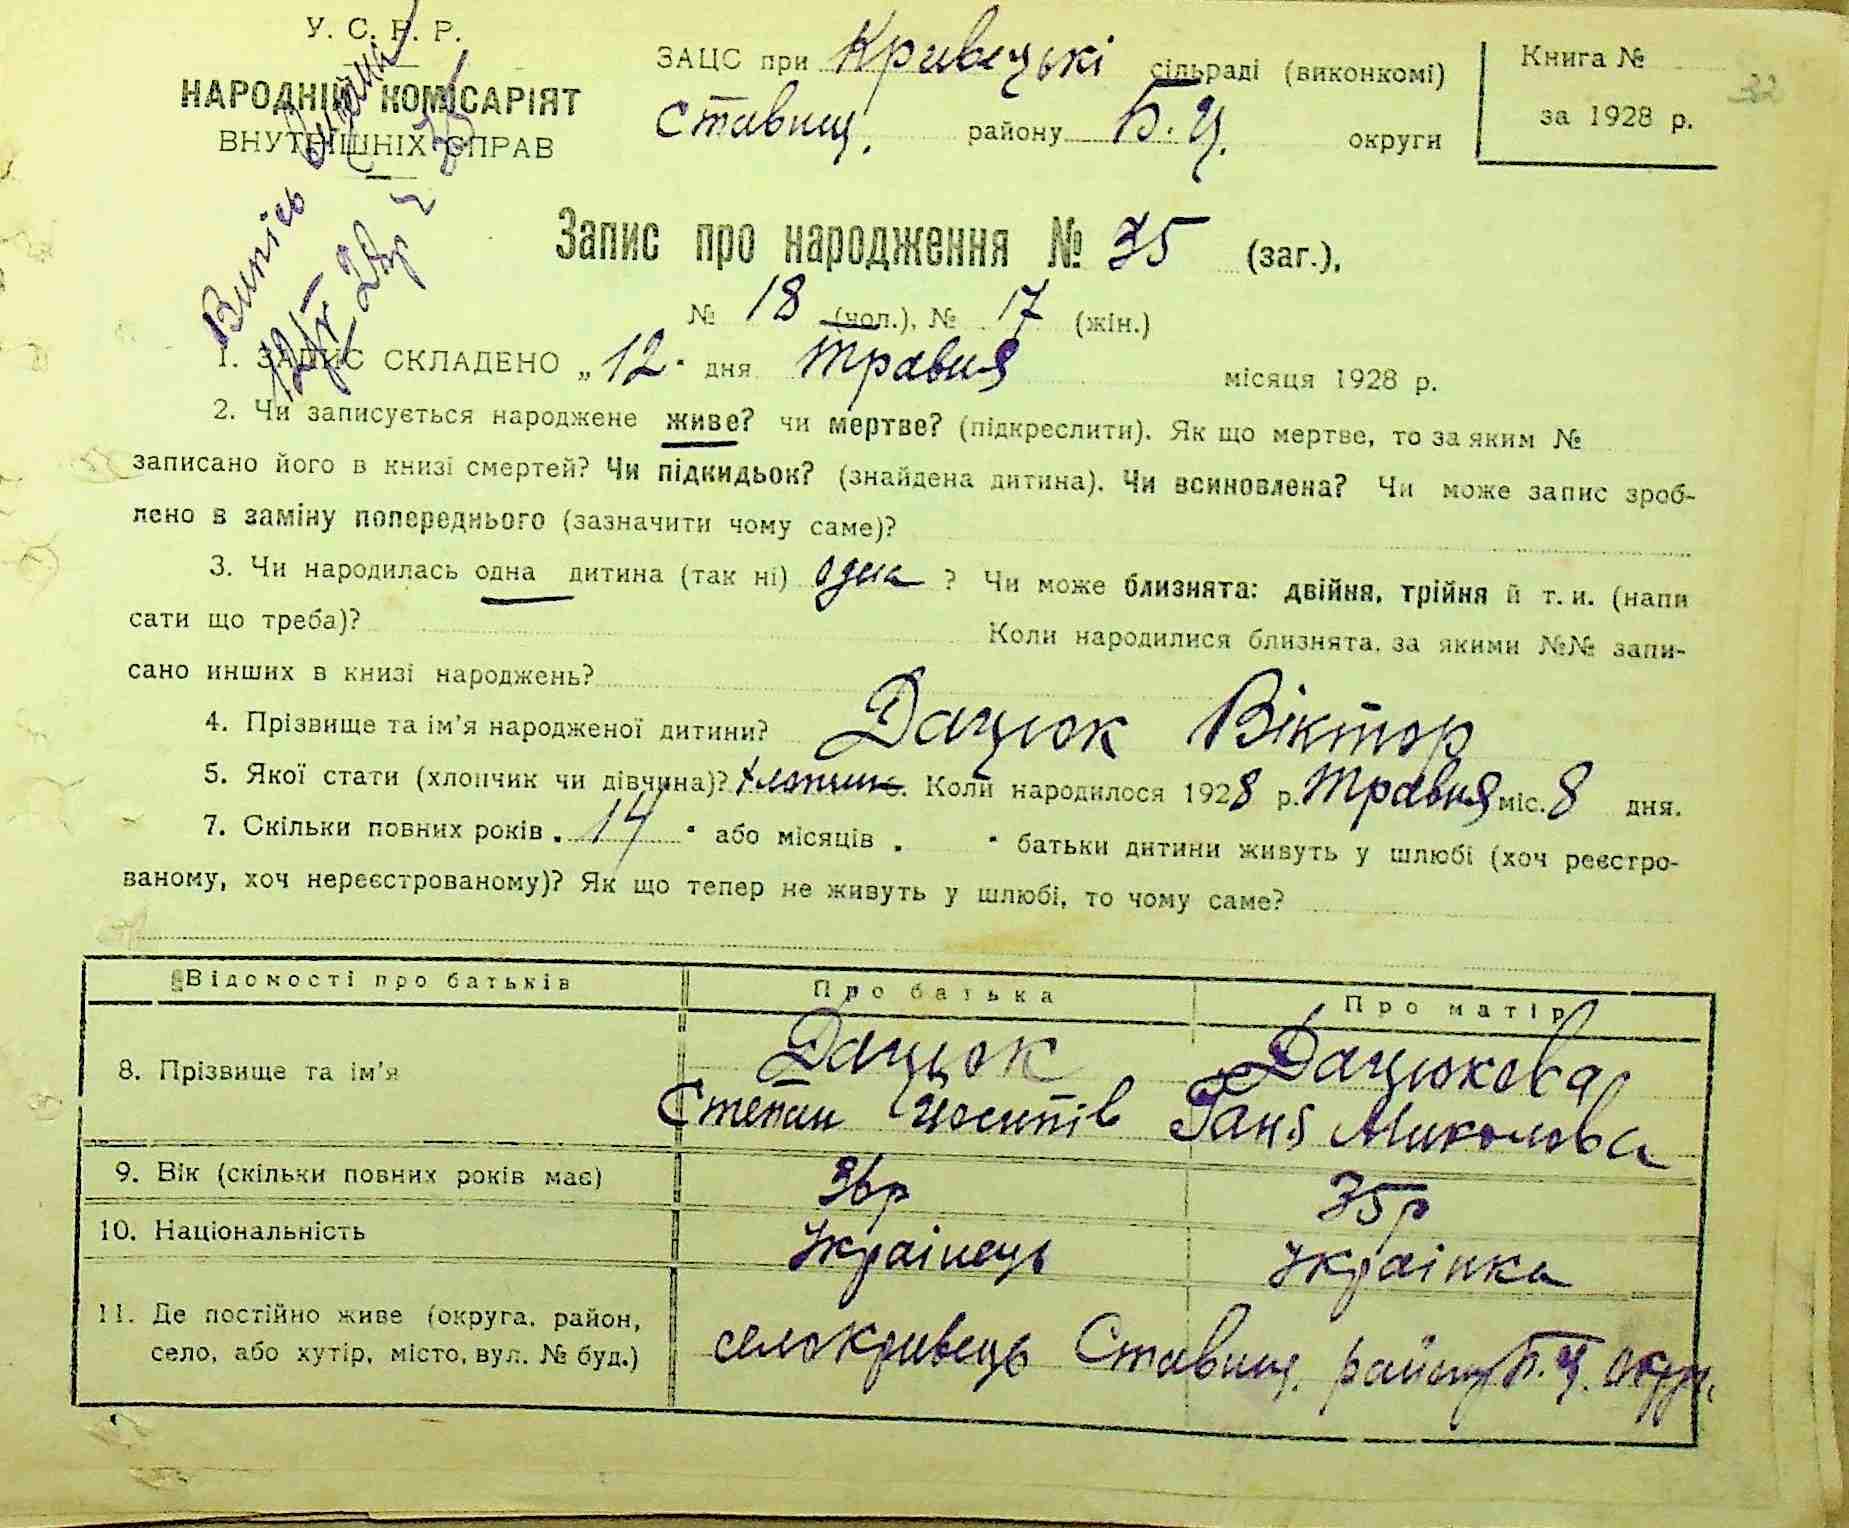 У. С. Р. Р.
НАРОДНІЙ КОМІСАРІЯТ
ВНУТРІШНІХ СПРАВ
Випись
ЗАЦС при Кривецькі сільраді (виконкомі)
Ставищ. району Б. Ц. округи
Книга №
за 1928 р.
32
Запис про народження № 35 (заг.),
№ 18 (чол.), № 17 (жін.)
1. ЗАПИС СКЛАДЕНО „12" дня травня місяця 1928 р.
2. Чи записується народжене живе? чи мертве? (підкреслити). Як що мертве, то за яким №
записано його в книзі смертей? Чи підкидьок? (знайдена дитина). Чи всиновлена? Чи може запис зроб-
лено в заміну попереднього (зазначити чому саме)?
3. Чи народилась одна дитина (так ні) одна ? Чи може близнята: двійня, трійня й т. и. (напи
сати що треба)? Коли народилися близнята, за якими №№ запи-
сано инших в книзі народжень?
4. Прізвище та ім'я народженої дитини? Дацюк Віктор
5. Якої стати (хлопчик чи дівчина)? хлопчик 6. Коли народилося 1928 р. травня міс. 8 дня.
7. Скільки повних років „ 14 " або місяців „ " батьки дитини живуть у шлюбі (хоч реєстро-
ваному, хоч нереєстрованому)? Як що тепер не живуть у шлюбі, то чому саме?
Відомості про батьків Про батька Про матір
8. Прізвище та ім'я Дацюк Дацюкова
Степан Йосипів Ганя Миколова
9. Вік (скільки повних років має) 36р 35р
10. Національність Українець Українка
11. Де постійно живе (округа, район,
село, або хутір, місто, вул. № буд.) село Кривець Ставищ. району Б. Ц. Окру.